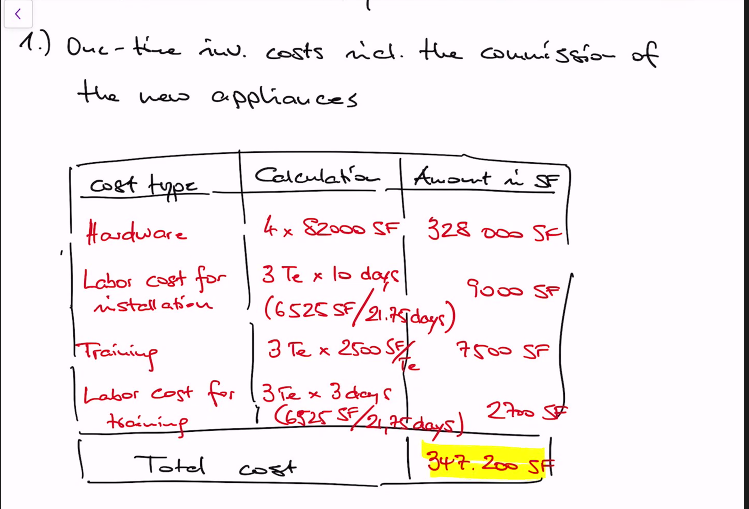 1.) One-time inv. costs incl. the commission of
the new appliances
Cost type Calculation Amount in SF
Hardware 4 x 82000 SF 328 000 SF
Labor cost for installation 3 Te x 10 days (6525 SF/21.75 days) 9000 SF
Training 3 Te x 2500 SF/Te 7500 SF
Labor cost for training 3 Te x 3 days (6525 SF/21,75 days) 2700 SF
Total cost 347.200 SF